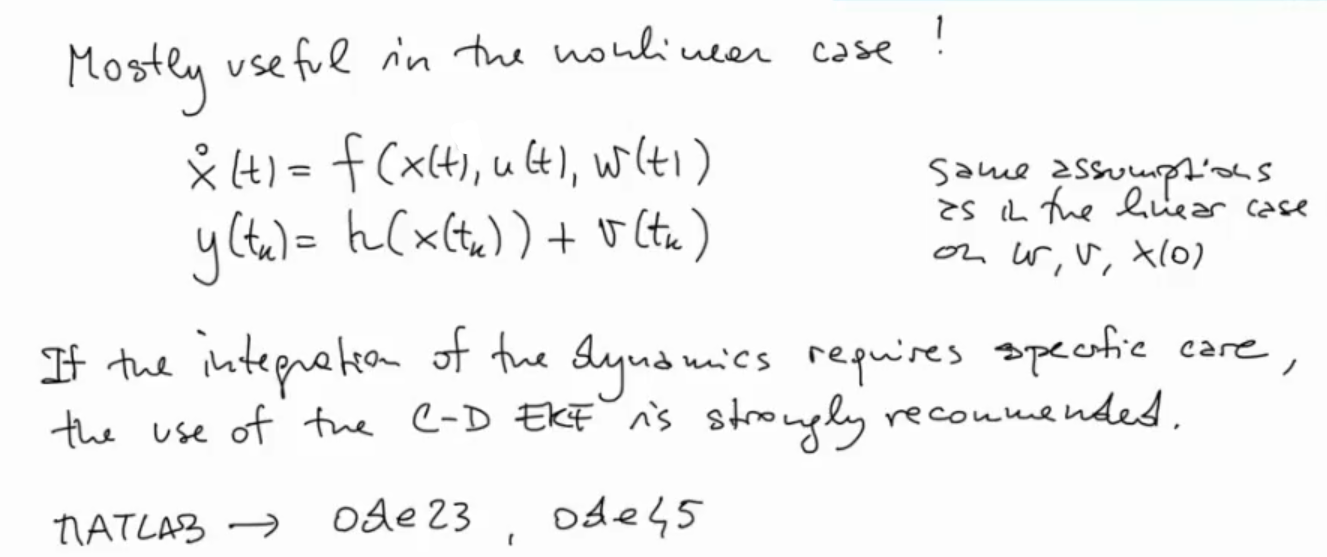 Mostly useful in the nonlinear case !
ẋ(t) = f(x(t), u(t), w(t))
same assumptions
as in the linear case
on w, v, x(0)
y(tₖ) = h(x(tₖ)) + v(tₖ)
If the integration of the dynamics requires specific care,
the use of the C-D EKF is strongly recommended.
MATLAB → ode23, ode45